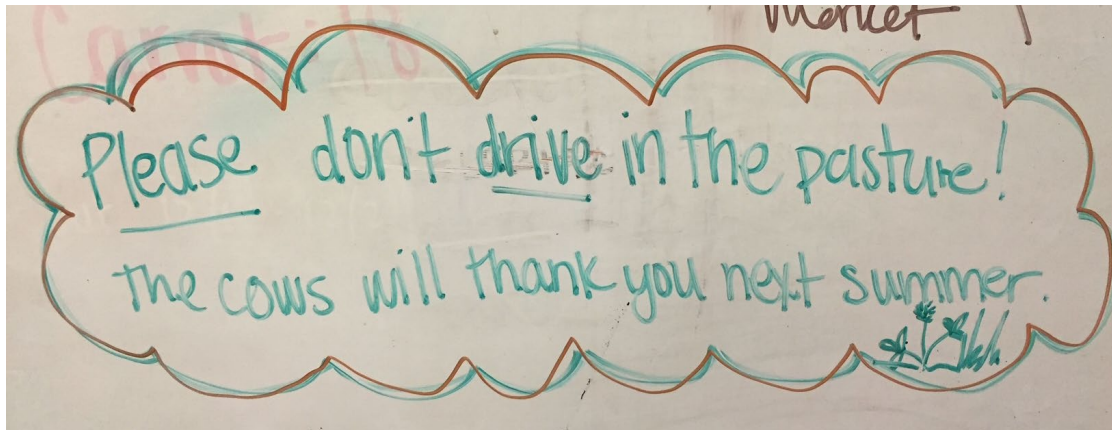 Market
Please don't drive in the pasture!
The cows will thank you next summer.